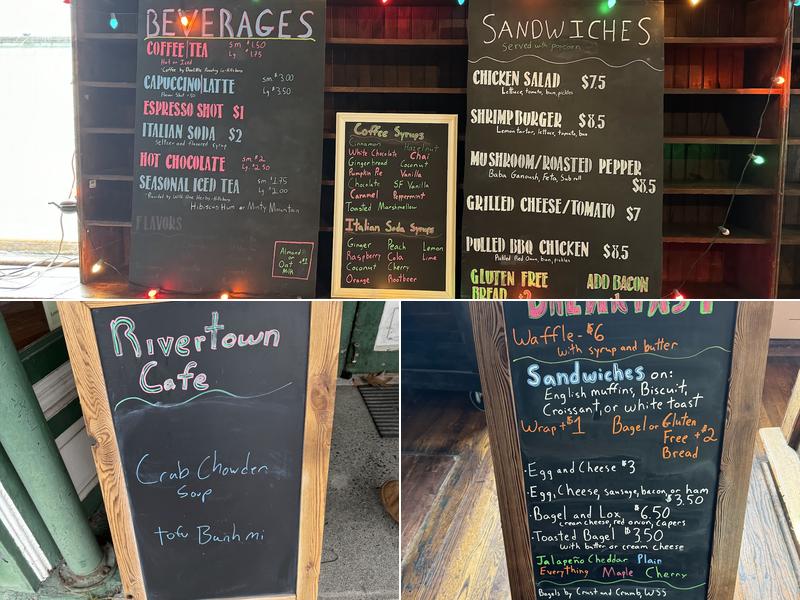 BEVERAGES
COFFEE/TEA sm $1.50
Hot or Iced Lg $1.75
CAPPUCCINO/LATTE sm $3.00
Lg $3.50
ESPRESSO SHOT $1
ITALIAN SODA $2
Seltzer and flavored syrup
HOT CHOCOLATE sm $2
Lg $2.50
SEASONAL ICED TEA sm $1.75
Lg $2.00
Hibiscus Hum or Minty Mountain
FLAVORS
Almond or
Oat
Milk
Coffee Syrups
Cinnamon Hazelnut
White Chocolate Chai
Gingerbread Coconut
Pumpkin Pie Vanilla
Chocolate SF Vanilla
Caramel Peppermint
Toasted Marshmellow
Italian Soda Syrups
Ginger Peach Lemon
Raspberry Cola Lime
Coconut Cherry
Orange Rootbeer
SANDWICHES
Served with popcorn
CHICKEN SALAD $7.5
Lettuce, tomato, bun, pickles
SHRIMP BURGER $8.5
Lemon tartar, lettuce, tomato, bun
MUSHROOM/ROASTED PEPPER
Baba Ganoush, Feta, Sub roll
$8.5
GRILLED CHEESE/TOMATO $7
PULLED BBQ CHICKEN $8.5
Pickled Red Onion, bun, pickles
GLUTEN FREE ADD BACON
BREAD $2
Rivertown
Cafe
Crab Chowder
Soup
tofu Banh mi
BREAKFAST
Waffle - $6
with syrup and butter
Sandwiches on:
English muffins, Biscuit,
Croissant, or white toast
Wrap + $1 Bagel or Gluten
Free + $2
Bread
· Egg and Cheese $3
· Egg, Cheese, sausage, bacon, or ham
$3.50
· Bagel and Lox $6.50
cream cheese, red onion, capers
· Toasted Bagel $3.50
with butter or cream cheese
Jalapeño Cheddar Plain
Everything Maple Cherry
Bagels by Crust and Crumb, WSS